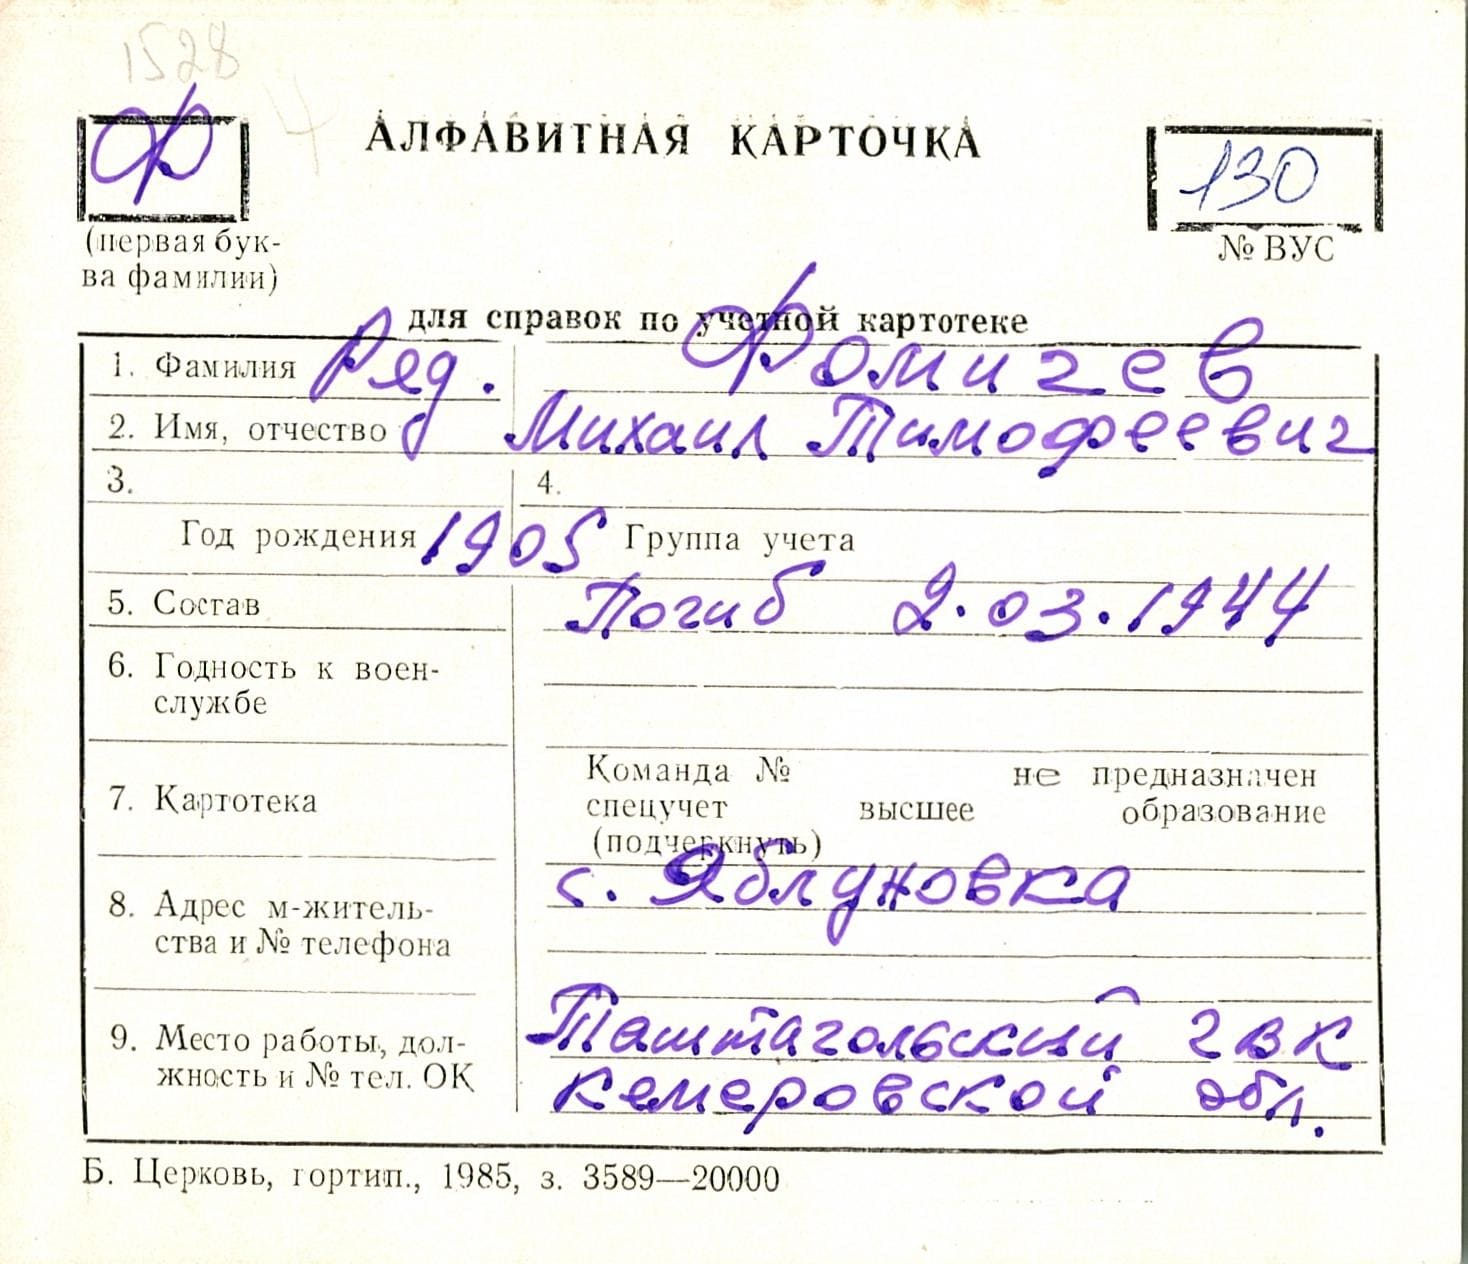 1528
Ф
АЛФАВИТНАЯ КАРТОЧКА
130
(первая бук-
ва фамилии)
№ ВУС
для справок по учетной картотеке
1. Фамилия Ряд. Фомичев
2. Имя, отчество Михаил Тимофеевич
3. 4.
Год рождения 1905 Группа учета
5. Состав Погиб 2.03.1944
6. Годность к воен-
службе
7. Картотека
Команда № не предназначен
спецучет высшее образование
(подчеркнуть)
8. Адрес м-житель-
ства и № телефона
с. Яблуновка
9. Место работы, дол-
жность и № тел. ОК
Таштагольский ГВК
Кемеровской обл.
Б. Церковь, гортип., 1985, з. 3589—20000